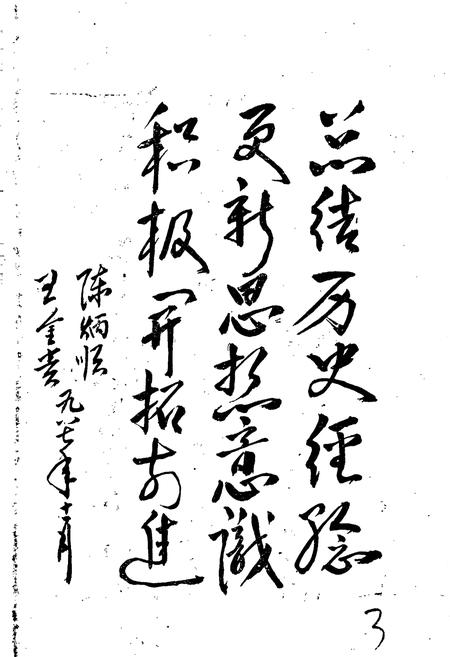 总结历史经验
更新思想意识
积极开拓前进
陈炳顺
王金贵 九八七年十一月
3